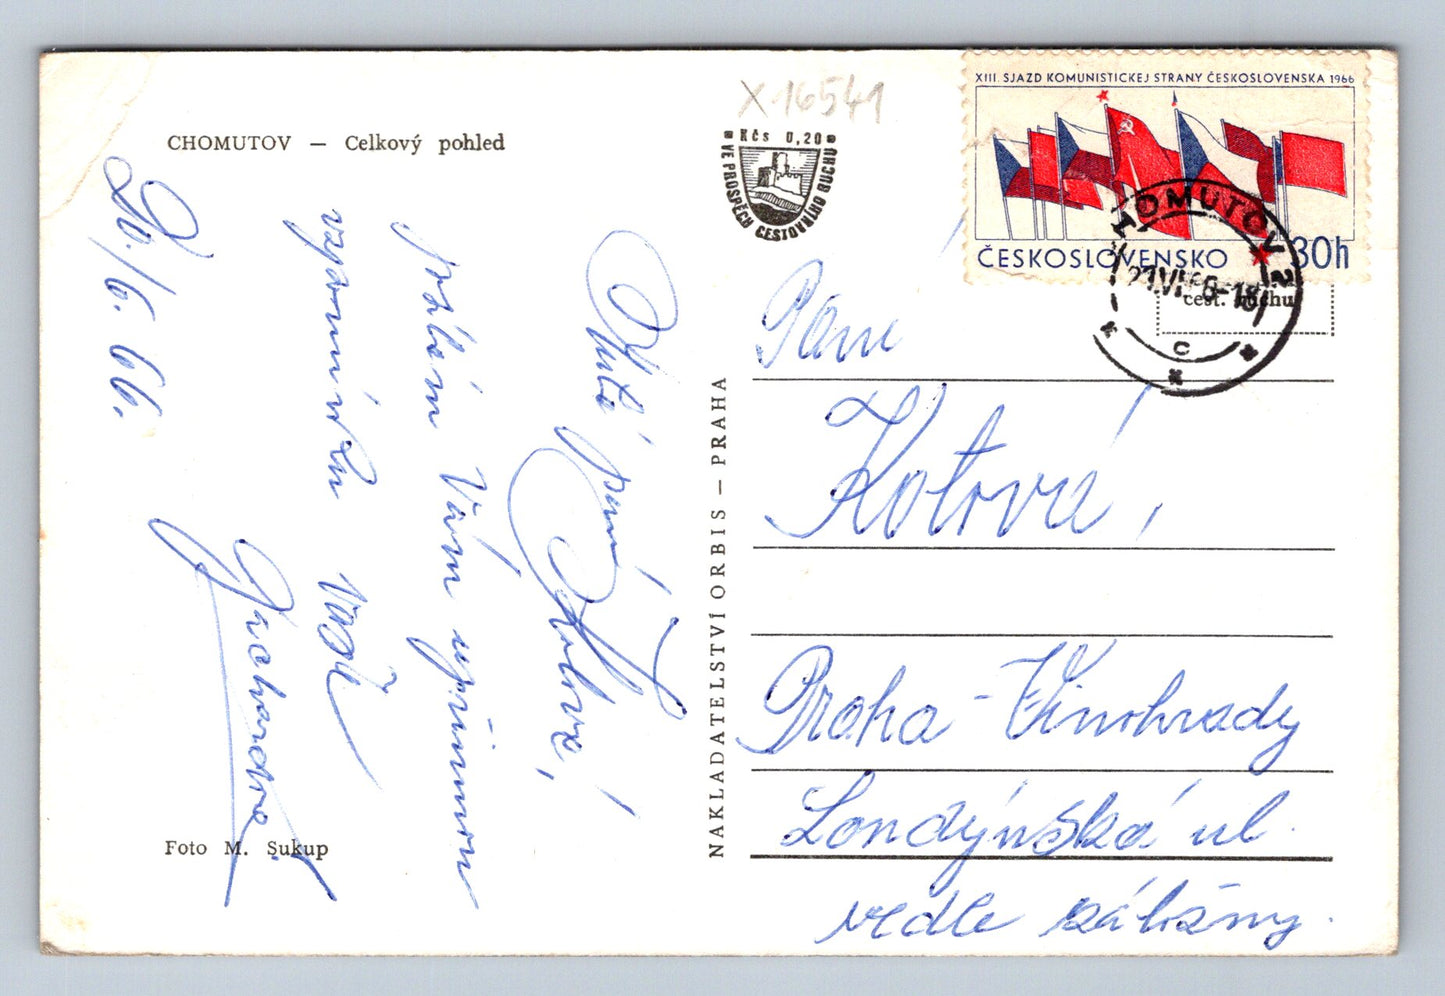 CHOMUTOV — Celkový pohled
20./6. 66.
Milá paní
Kotová,
posílám Vám upřímnou
vzpomínku Vaše
Foto M. Sukup
NAKLADATELSTVÍ ORBIS — PRAHA
X 16541
Kčs 0,20
VE PROSPĚCH CESTOVNÍHO RUCHU
XIII. SJAZD KOMUNISTICKEJ STRANY ČESKOSLOVENSKA 1966
ČESKOSLOVENSKO 30h
CHOMUTOV 2
21.VI.66-18
C
cest. ruchu
Paní
Kotová,
Praha - Vinohrady
Londýnská ul.
vedle záložny.